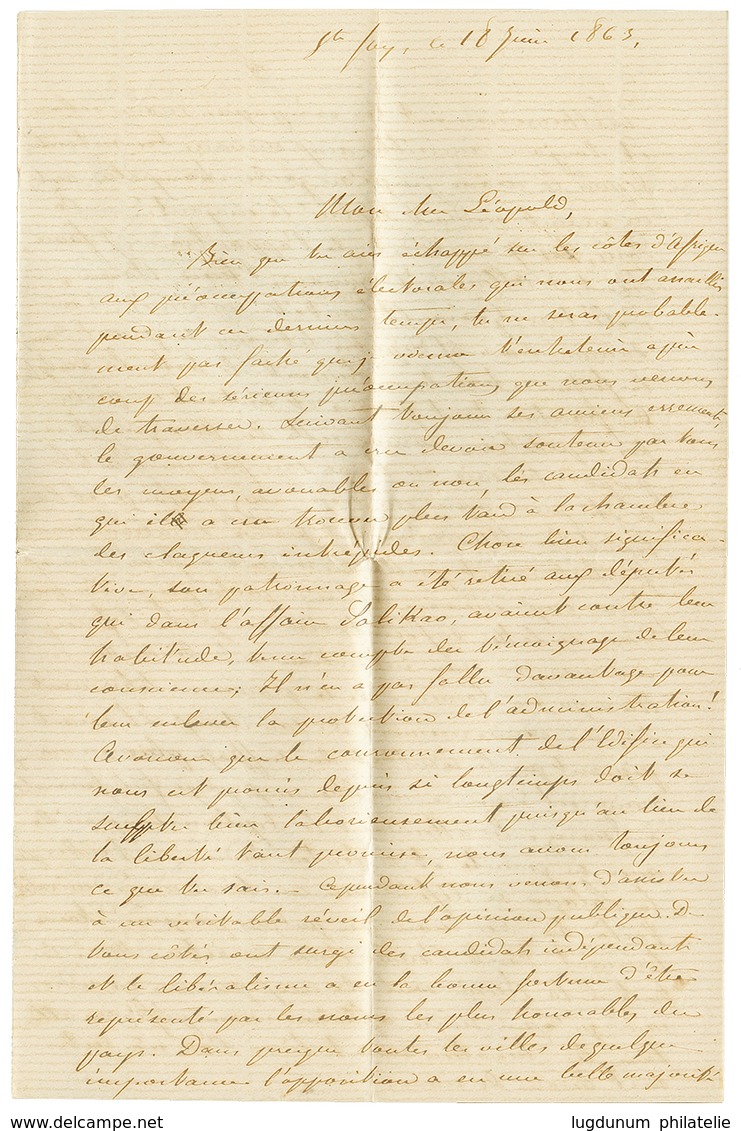 Ste foy, le 18 Juin 1863,
Mon cher Léopold,
Bien que tu aies échappé sur les côtes d'Afrique
aux préoccupations électorales qui nous ont assaillis
pendant ces derniers temps, tu ne seras probable-
ment pas faché que je vienne t'entretenir après
coup des sérieuses préoccupations que nous venons
de traverser. Suivant toujours ses anciens errements,
le gouvernement a cru devoir soutenir par tous
les moyens, avouables ou non, les candidats en
qui il a cru trouver plus tard à la chambre
des claqueurs intrépides. Chose bien significa-
tive, son patronnage a été retiré aux députés
qui dans l'affaire Palikao, avaient contre leur
habitude, tenu compte du témoignage de leur
conscience; Il n'en a pas fallu davantage pour
leur enlever la protection de l'administration!
Avouons que le couronnement de l'Edifice qui
nous est promis depuis si longtemps doit se
sculpter bien laborieusement puisqu'au lieu de
la liberté tant promise, nous avons toujours
ce que tu sais. - Cependant nous venons d'assister
à un véritable réveil de l'opinion publique. De
tous côtés ont surgi des candidats indépendants
et le libéralisme a eu la bonne fortune d'être
représenté par les noms les plus honorables du
pays. Dans presque toutes les villes de quelque
importance l'opposition a eu une belle majorité
lugdunum philatelie